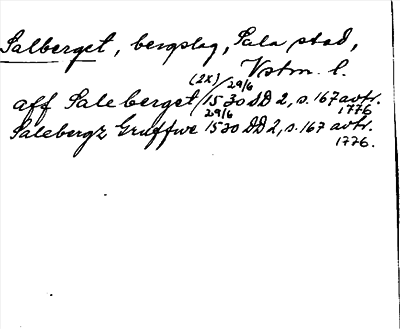 Salberget, bergslag, Sala stad,
Vstm. l.
aff Saleberget (2X) 29/6 1530 DD 2, s. 167 avtr. 1776
Salebergz Gruffwe 29/6 1530 DD 2, s. 167 avtr. 1776.